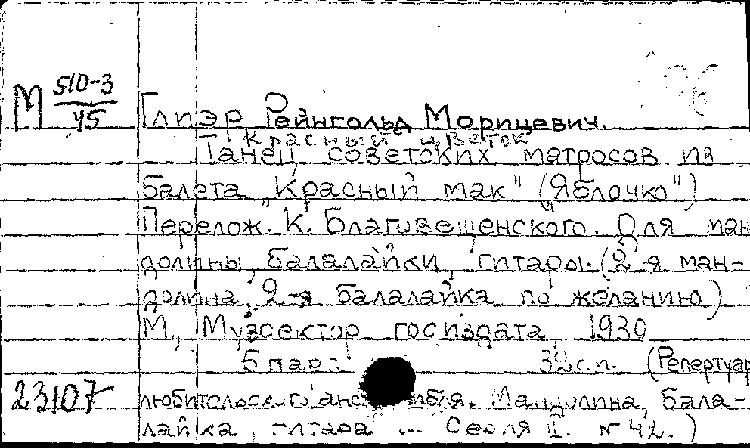 М 510-3/45
Глиэр Рейнгольд Морицевич.
Красный цветок
Танец советских матросов из
балета „Красный мак" („Яблочко")
Перелож. К. Благовещенского. Для ман
долины, балалайки, гитары. (2-я ман-
долина, 2-я балалайка по желанию)
М, Музсектор госиздата 1930
5 парт. 32 с.п. (Репертуар
23107
любительск. Мандолина, бала-
лайка, гитара ... Серия II. N 42.)